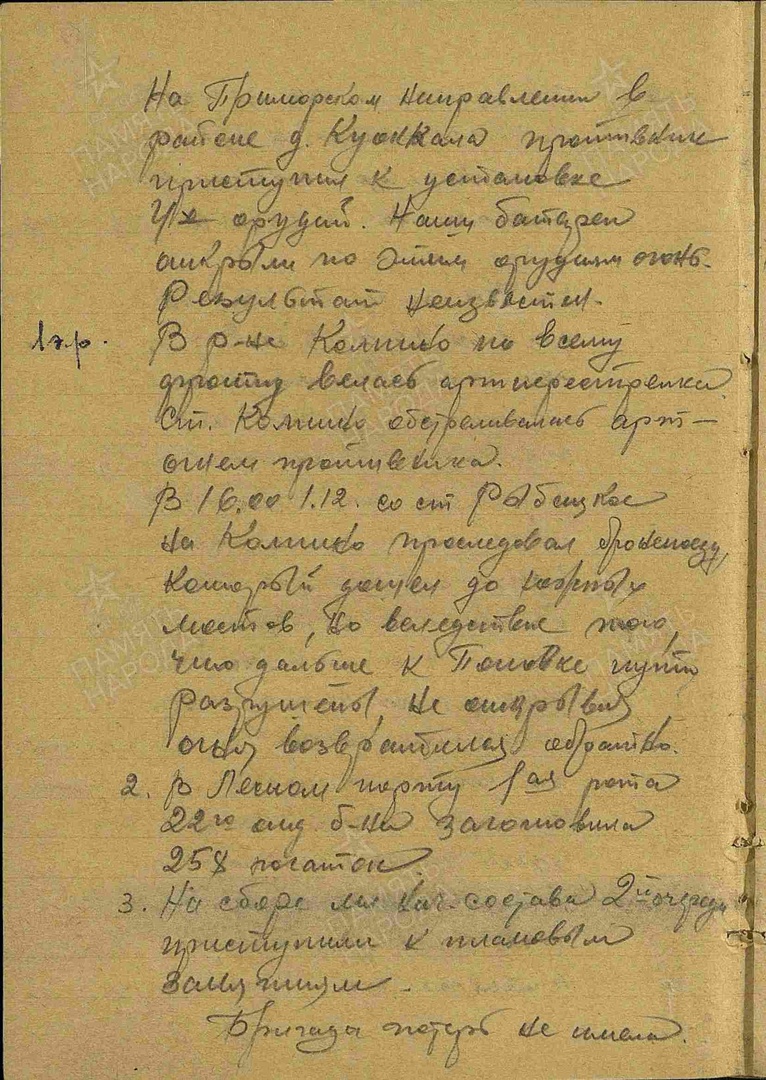 На Приморском направлении в
районе д. Куоккала противник
приступил к установке
4х орудий. Наши батареи
открыли по этим орудиям огонь.
Результат неизвестен.
В р-не Колпино по всему
фронту велась артперестрелка.
Ст. Колпино обстреливалась арт-
огнем противника.
В 16.00 1.12. со ст Рыбецкое
на Колпино проследовал бронепоезд,
который дошел до
мостов, но вследствие того,
что дальше к Поповке пути
разрушены, не открывая
огня возвратился обратно.
2. В Лесном порту 1ая рота
22го б-на заготовила
258 рогаток
3. На сборе мл. нач. состава 2й очереди
приступили к плановым
занятиям.
Бригада потерь не имела.
ПАМЯТЬ
НАРОДА